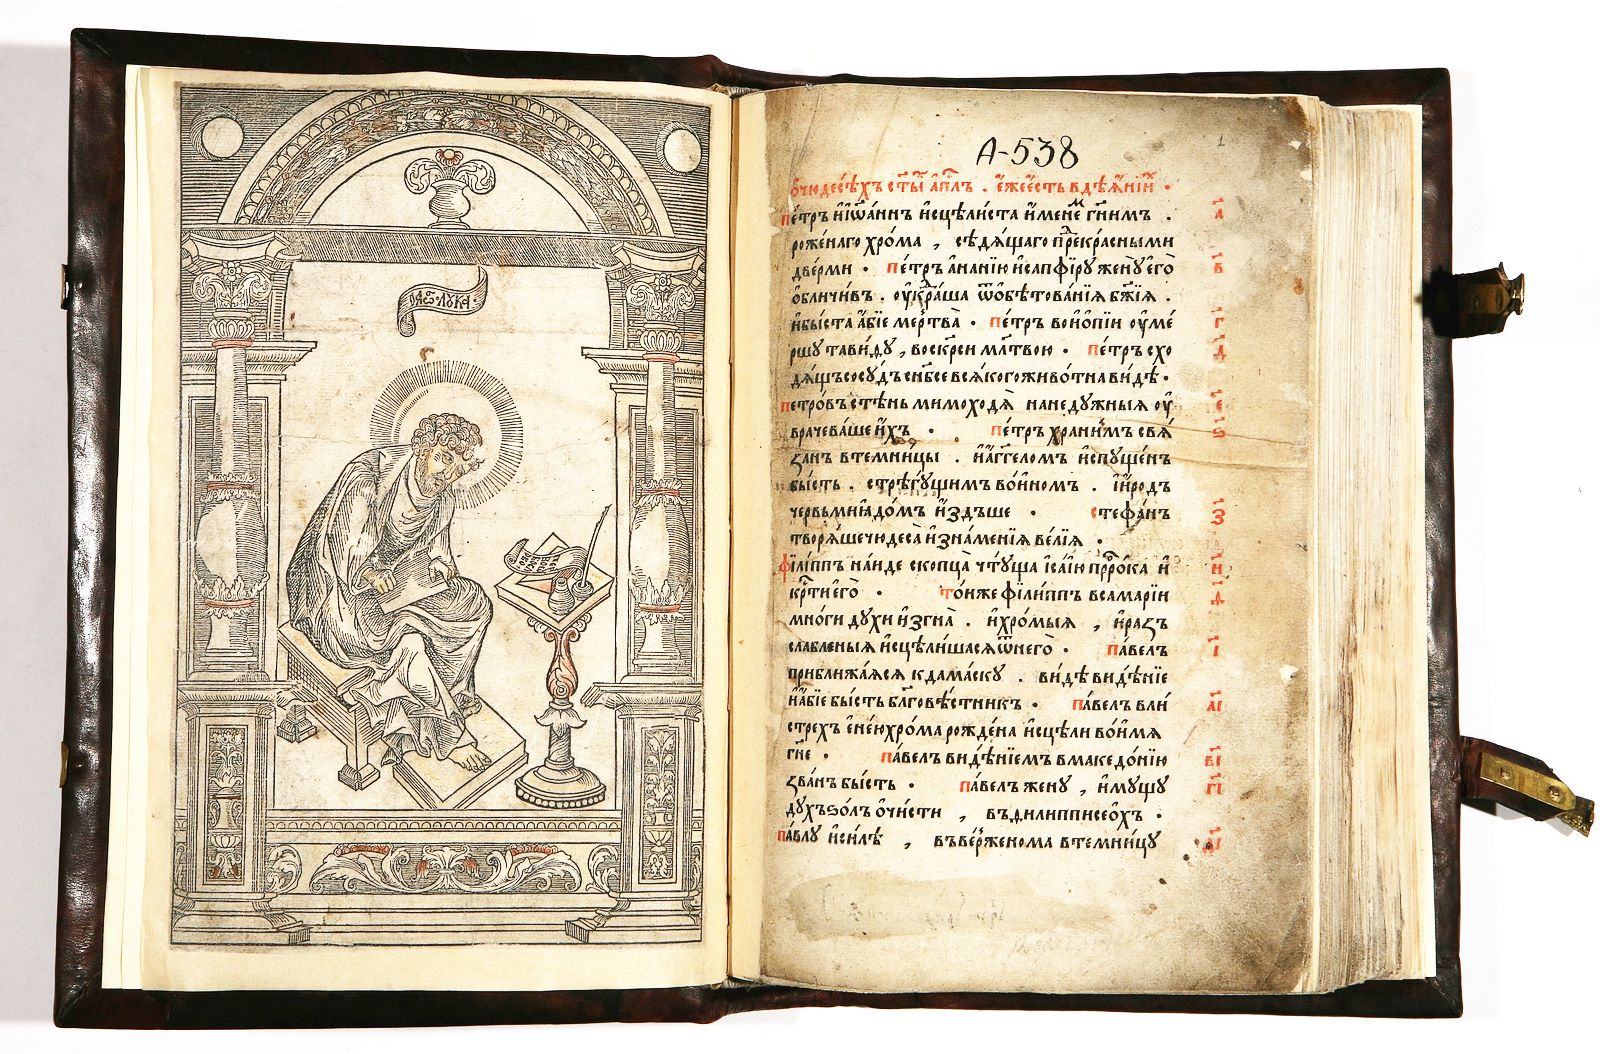 ЛУКА
А-538
1
ѻ҆чюдесѣ́хъ ст҃ы́ а҆пл҃ъ . є҆́же є҆́сть в дѣѧ́нїй •
пе́тръ и҆ і҆ѡа́ннъ и҆сцѣли́ста и҆́менемъ гн҃имъ . а҃
роже́наго хро́ма , сѣдѧ́щаго пⷬекра́сными
две́рми • пе́тръ а҆на́нїю и҆ сапфі́рꙋ женꙋ̀ є҆го̀ в҃
ѡ҆бличи́въ . ѹ҆кра́ша ѿ ѻ҆бѣтова́нїѧ бж҃їѧ .
и҆ бы́ста а҆́бїе ме́ртва̀ • пе́тръ во и҆ѻ҆пі́и ѹ҆ме́ г҃
ршꙋ тави́дꙋ , воскр҃си мл҃твою • пе́тръ схо д҃
дѧ́щъ сосꙋ́дъ с нб҃се всѧ́кого живо́тна ви́дѣ •
петро́въ стѣ́нь мимоходѧ̀ на недꙋ́жныѧ ѹ҆ є҃
врачева́ше и҆́хъ • пе́тръ храни́мъ свѧ́ ѕ҃
занъ в темни́цы . и҆ а҆́гг҃еломъ и҆спꙋще́нъ
бы́сть . стрѣгꙋ́щимъ во́иномъ . и҆ и҆́родъ
червьмѝ ꙗ҆до́мъ и҆́здъше • стефа́нъ з҃
творѧ́ше чюдеса̀ и҆ зна́менїѧ ве́лїѧ •
фїлі́ппъ на́иде скопца̀ чтꙋ́ща і҆са́їю прⷪ҇ро́ка и҆ и҃
крⷭ҇ти є҆го̀ • то́иже фїли́ппъ в самарі́и ѳ҃
мно́ги дꙋ́хи и҆згна̀ . и҆ хро́мыѧ , и҆ ра́з
сла́бленыѧ и҆сцѣли́шасѧ ѿ него̀ • па́велъ і҃
приближа́ѧсѧ к дама́скꙋ . ви́дѣ видѣ́нїе
и҆ а҆́бїе бы́сть бл҃говѣ́стникъ • па́велъ в ли́ аі҃
стрехъ є҆не́ю хро́ма рожде́на и҆сцѣ́ли во и҆́мѧ
гн҃е • па́велъ видѣ́нїемъ в македо́нїю ві҃
зва́нъ бы́сть • па́велъ женꙋ̀ , и҆мꙋ́щꙋ гі҃
дꙋ́хъ ѕо́лъ ѻ҆чи́сти , въ филипписео́хъ •
па́влꙋ и҆ си́лѣ , въве́рженома в темни́цꙋ ді҃